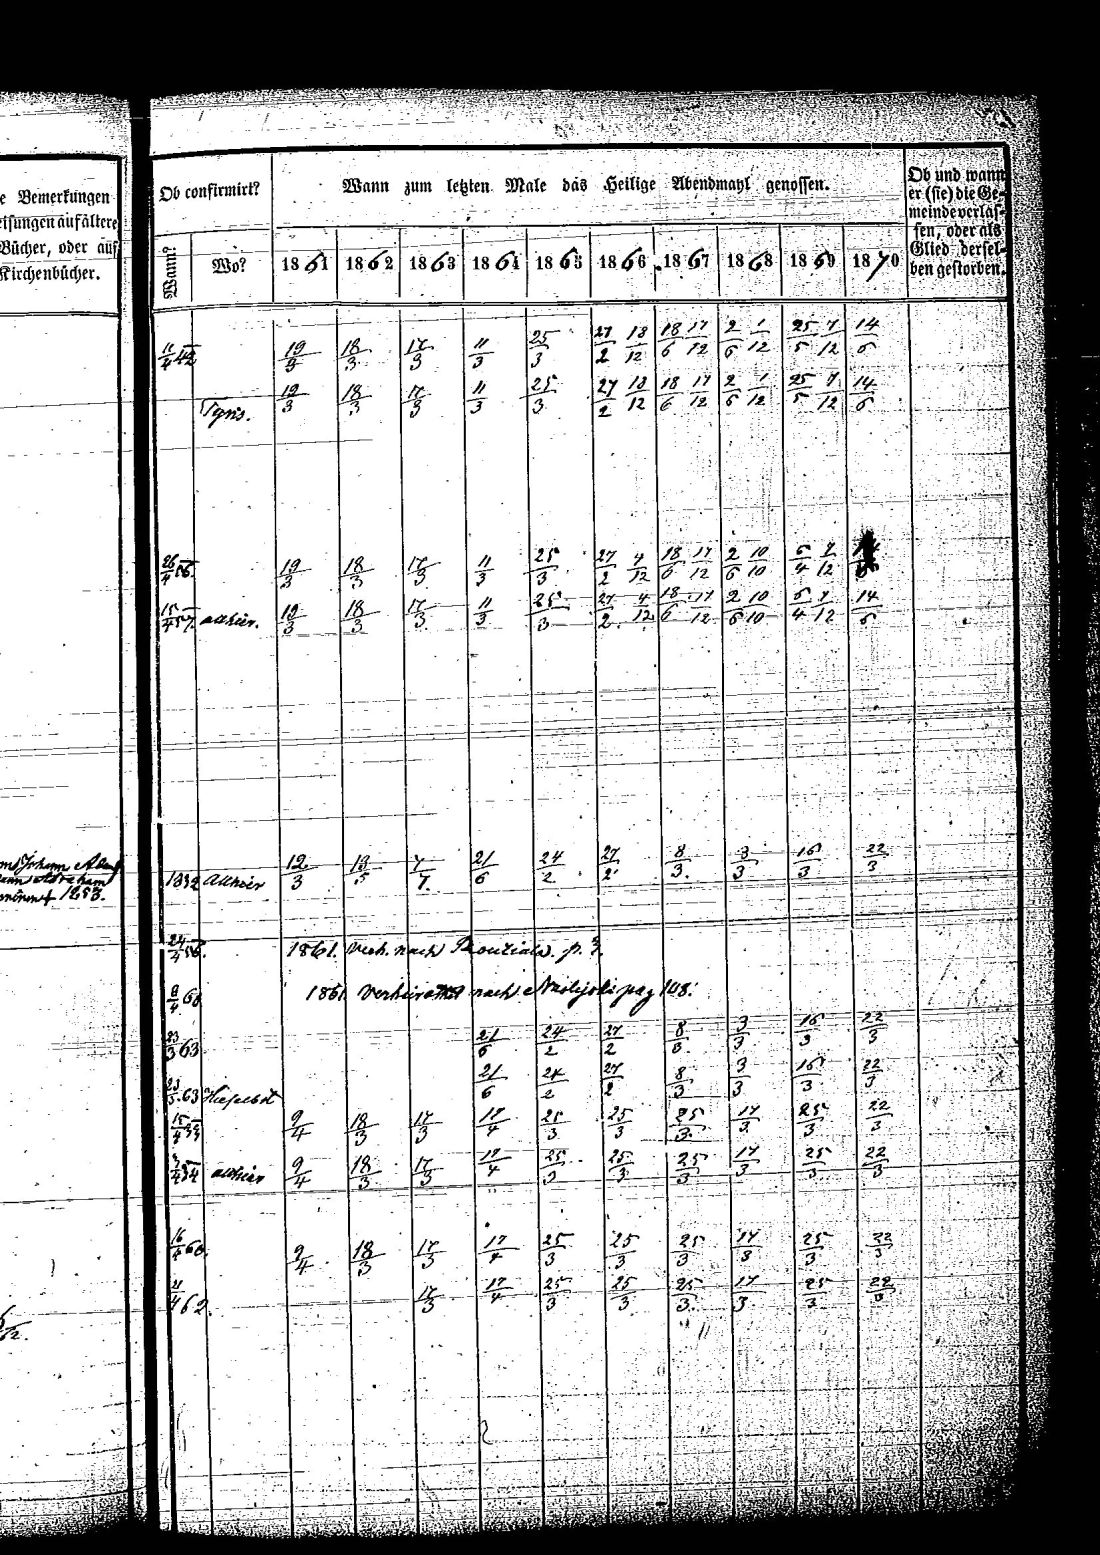 e Bemerkungen
eisungen auf ältere
Bücher, oder auf
Kirchenbücher.
Ob confirmirt?
Wann zum letzten Male das Heilige Abendmahl genossen.
Ob und wann
er (sie) die Ge-
meinde verlas-
sen, oder als
Glied dersel-
ben gestorben.
Wann? Wo? 1861 1862 1863 1864 1865 1866 1867 1868 1869 1870
11/4 42 19/3 18/3 17/3 11/3 25/3 27/2 18/12 18/6 17/12 2/6 1/12 25/5 7/12 14/6
19/3 18/3 17/3 11/3 25/3 27/2 18/12 18/6 17/12 2/6 1/12 25/5 7/12 14/6
26/4 56. 19/3 18/3 17/3 11/3 25/3 27/2 4/12 18/6 17/12 2/6 10/10 6/4 7/12
15/4 57. allhier. 19/3 18/3 17/3 11/3 25/3 27/2 4/12 18/6 17/12 2/6 10/10 6/4 7/12 14/6
Johann
Abraham
1853.
1832 Allhier 19/3 18/5 7/7. 21/6 24/2 27/2 8/3. 3/3 16/3 22/3
24/4 58. 1861. verh. nach p. 3.
9/4 60 1861 verheirathet nach pag 148.
23/3 63 21/6 24/2 27/2 8/3. 3/3 16/3 22/3
23/3 63 Hieselbst 21/6 24/2 27/2 8/3 3/3 16/3 22/3
15/4 9/4 18/3 17/3 17/4 25/3 25/3 25/3. 17/3 25/3 22/3
allhier 9/4 18/3 17/3 17/4 25/3 25/3 25/3 17/3 25/3 22/3
16/4 60 9/4 18/3 17/3 17/4 25/3 25/3 25/3 17/3 25/3 22/3
62. 17/3 17/4 25/3 25/3 25/3. 17/3 25/3 22/3